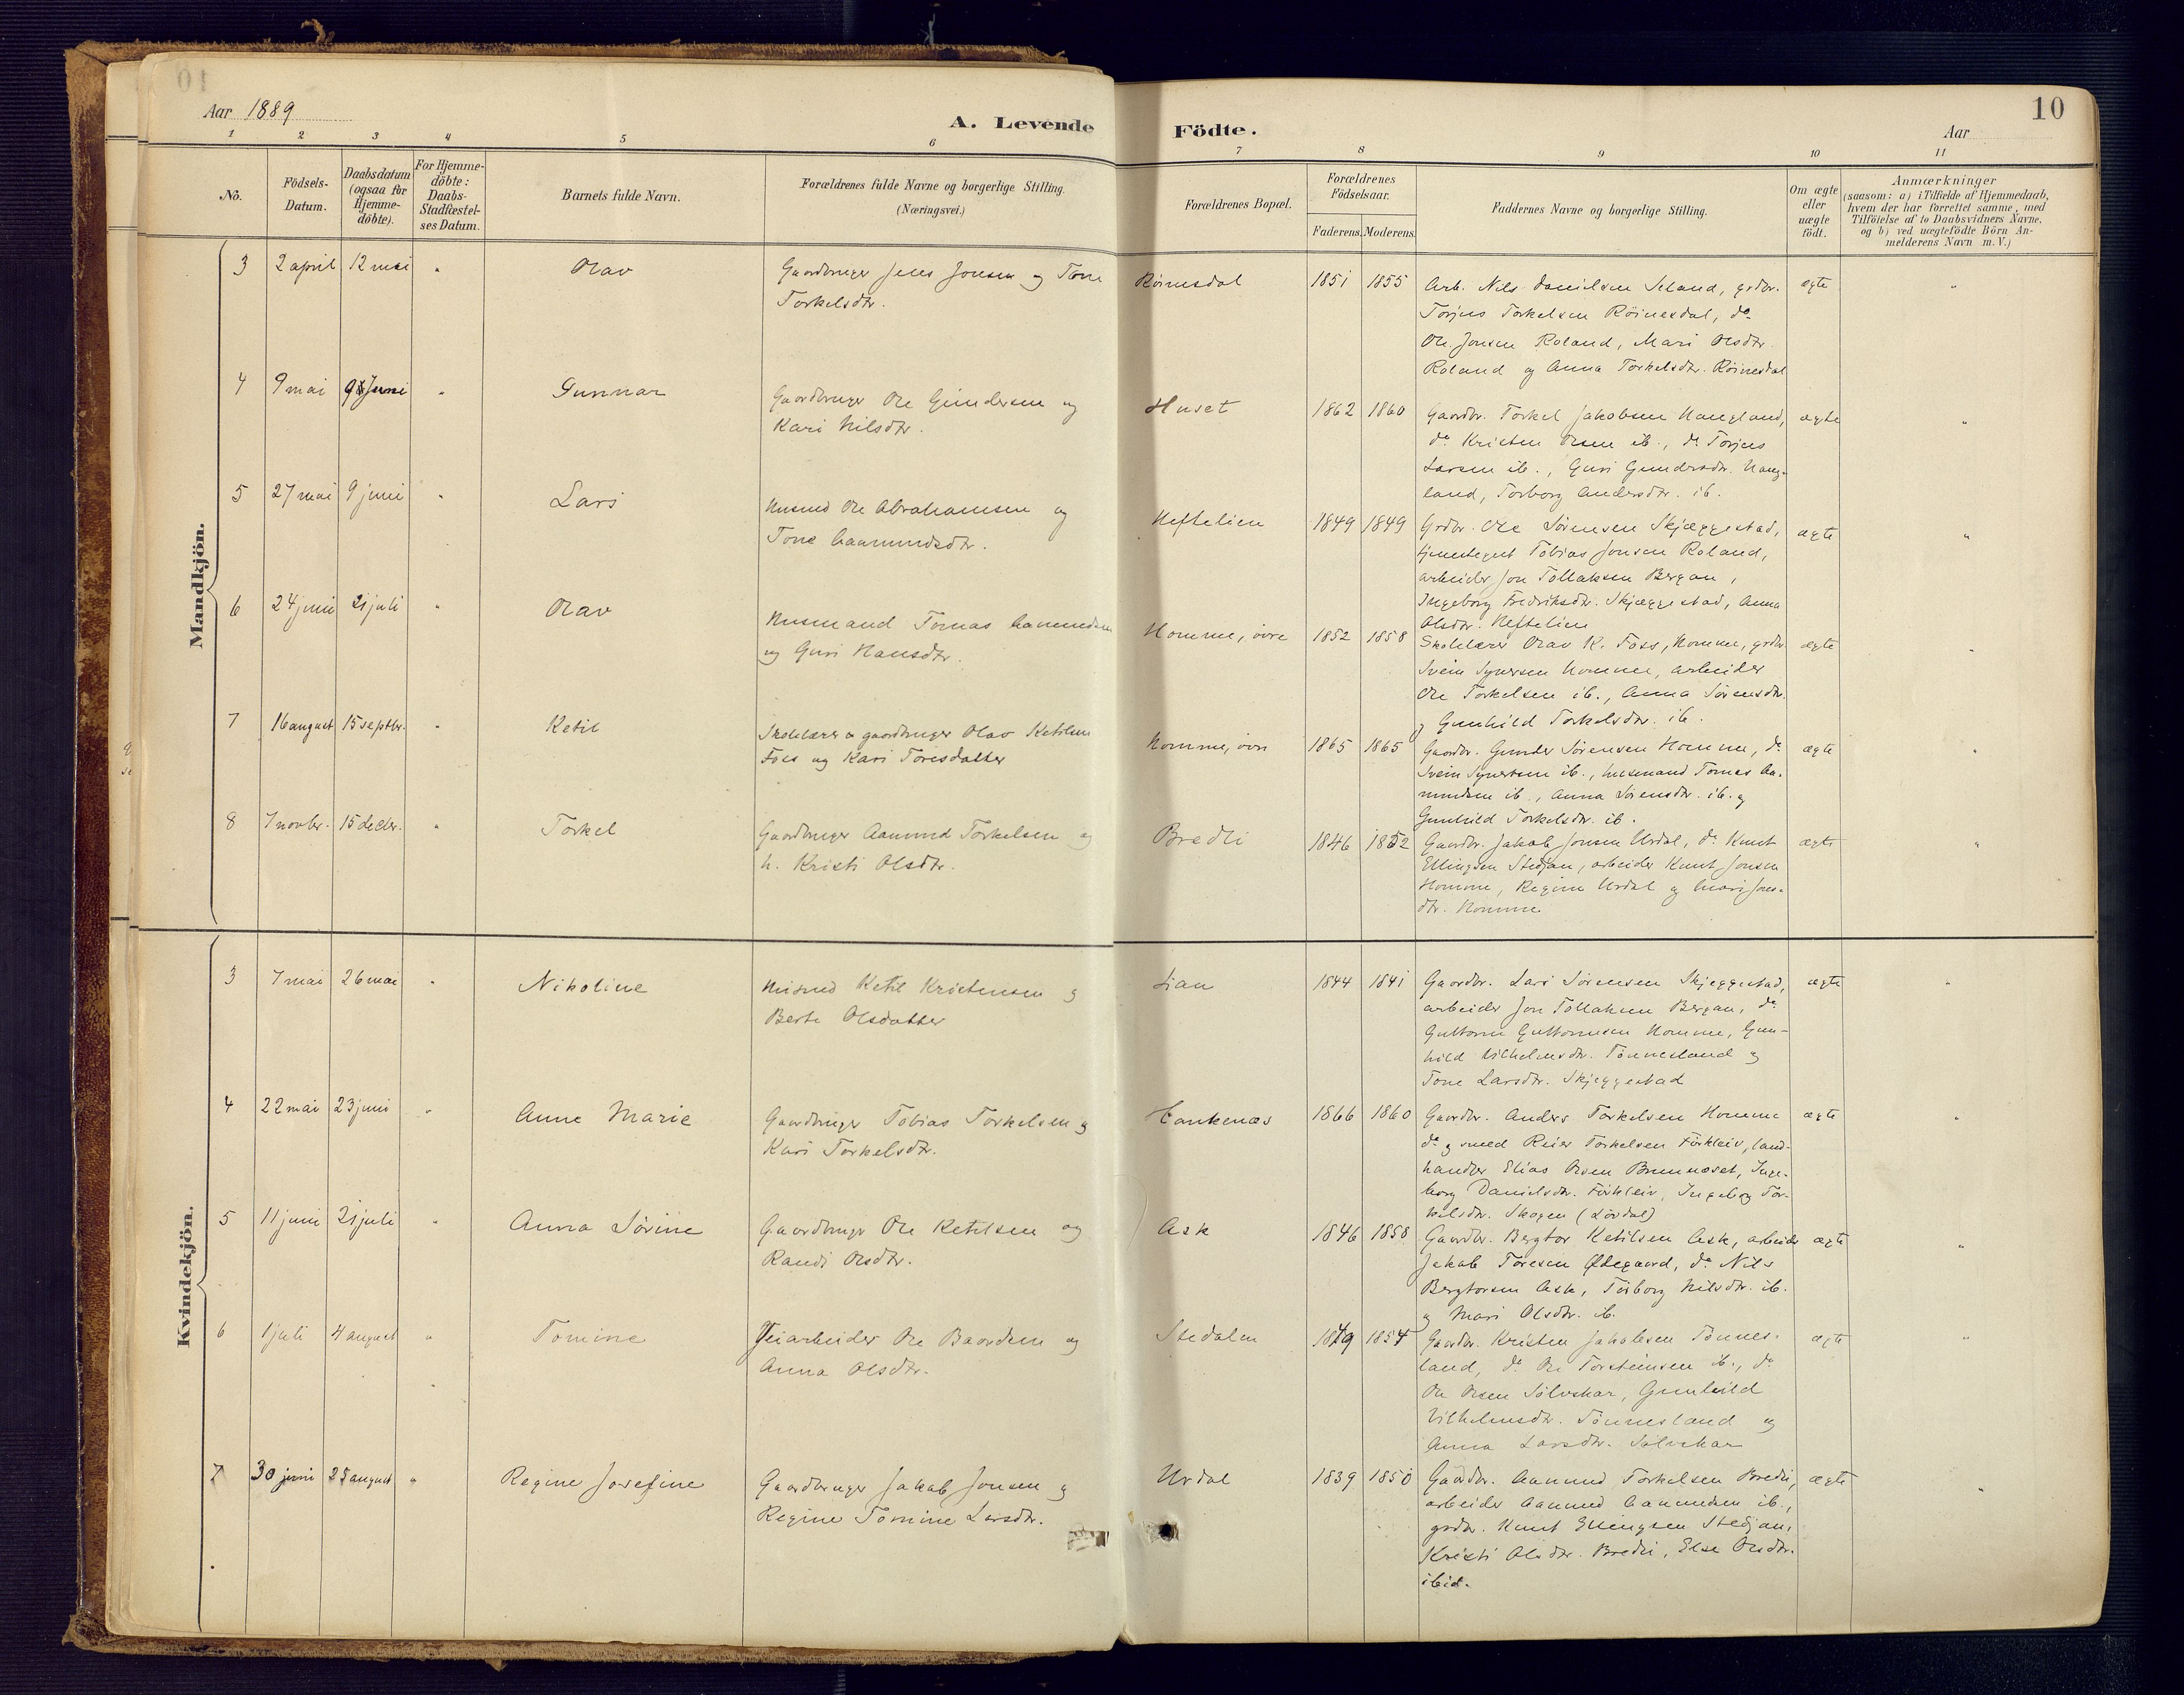 10
Aar 1889
A. Levende Födte.
Aar
10
1 2 3 4 5 6 7 8 9 10 11
No.
Födsels-
Datum.
Daabsdatum
(ogsaa for
Hjemme-
döbte).
For Hjemme-
döbte:
Daabs-
Stadfæstel-
ses Datum.
Barnets fulde Navn.
Forældrenes fulde Navne og borgerlige Stilling.
(Næringsvei.)
Forældrenes Bopæl.
Forældrenes
Födselsaar.
Faderens. Moderens.
Faddernes Navne og borgerlige Stilling.
Om ægte
eller
uægte
födt.
Anmærkninger
(saasom: a) i Tilfælde af Hjemmedaab,
hvem der har forrettet samme, med
Tilföielse af to Daabsvidners Navne,
og b) ved uægtefödte Börn An-
melderens Navn m.V.)
Mandkjön.
3 2 april 12 mai " Olav
Gaardbruger Jens Jonsen og Tone
Torkelsdtr.
Röinesdal 1851 1855
Arb. Nils Danielsen Seland, grdbr.
Torjus Torkelsen Röinesdal, do
Ole Jonsen Roland, Mari Olsdtr.
Roland og Anna Torkelsdtr. Röinesdal
ægte "
4 9 mai 9 Juni " Gunnar
Gaardbruger Ole Gundersen og
Kari Nilsdtr.
Huset 1862 1860
Gaardbr. Torkel Jakobsen Haugland,
do Kristen Olsen ib., do Torjus
Larsen ib., Guri Gundersdtr. Haug-
land, Torborg Andersdtr. ib.
ægte "
5 27 mai 9 juni " Lars
Husmd Ole Abrahamsen og
Tone Aanundsdtr.
Heftelien 1849 1849
Grdbr. Ole Sörensen Skjæggestad,
tjenestegut Tobias Jonsen Roland,
arbeider Jon Tollaksen Bergan,
Ingeborg Fredriksdtr. Skjæggestad, Anna
Olsdtr. Heftelien
ægte "
6 24 juni 21 juli " Olav
Husmand Tomas Aanundsen
og Guri Hansdtr.
Homme, övre 1852 1858
Skolelærer Olav K. Foss, Homme, grdbr.
Svein Syvertsen Homme, arbeider
Ole Torkelsen ib., Anna Sörensdtr.
og Gunhild Torkelsdtr. ib.
ægte "
7 16 august 15 septbr. " Ketil
Skolelærer & gaardbruger Olav Ketilsen
Foss og Kari Toresdatter
Homme, övre 1865 1865
Gaardbr. Gunder Sörensen Homme, do
Svein Syvertsen ib., husmand Tomas Aa-
nundsen ib., Anna Sörensdtr. ib. og
Gunhild Torkelsdtr. ib.
ægte "
8 7 novbr. 15 decbr. " Torkel
Gaardbruger Aanund Torkelsen og
h. Kristi Olsdtr.
Bredli 1846 1852
Gaardbr. Jakob Jonsen Urdal, do Knut
Ellingsen Stedjan, arbeider Knut Jonsen
Homme, Regine Urdal og Mari Jons-
dtr. Homme
ægte "
Kvindekjön.
3 7 mai 26 mai " Nikoline
Husmd Ketil Kristensen og
Berte Olsdatter
Lian 1844 1841
Gaardbr. Lars Sörensen Skjeggestad,
arbeider Jon Tollaksen Bergan, do
Guttorm Guttormsen Homme, Gun-
hild Vilhelmsdtr. Tönnesland og
Tone Larsdtr. Skjeggestad
ægte "
4 22 mai 23 juni " Anne Marie
Gaardbruger Tobias Torkelsen og
Kari Torkelsdtr.
Hankenæs 1866 1860
Gaardbr. Anders Torkelsen Homme
do og smed Reier Torkelsen Förkleiv, land-
handler Elias Olsen Brunnaset, Inge-
borg Danielsdtr. Förkleiv, Ingeborg Tor-
kelsdtr. Skogen (Lövdal)
ægte "
5 11 juni 21 juli " Anna Sörine
Gaardbruger Ole Ketilsen og
Randi Olsdtr.
Ask 1846 1858
Gaardbr. Bergtor Ketilsen Ask, arbeider
Jakob Toresen Ødegaard, do Nils
Bergtorsen Ask, Torborg Nilsdtr. ib.
og Mari Olsdtr. ib.
ægte "
6 1 juli 4 august " Tomine
Veiarbeider Ole Baardsen og
Anna Olsdtr.
Stedalen 1849 1854
Gaardbr. Kristen Jakobsen Tönnes-
land, do Ole Torsteinsen ib., do
Ole Olsen Sölvskar, Gunhild
Vilhelmsdtr. Tönnesland og
Anna Larsdtr. Sölvskar
ægte "
7 30 juni 25 august " Regine Josefine
Gaardbruger Jakob Jonsen og
Regine Tomine Larsdtr.
Urdal 1839 1850
Gaardbr. Aanund Torkelsen Bredli,
arbeider Aanund Aanundsen ib.,
grdbr. Knut Ellingsen Stedjan,
Kristi Olsdtr. Bredli, Else Olsdtr.
ibid.
ægte "